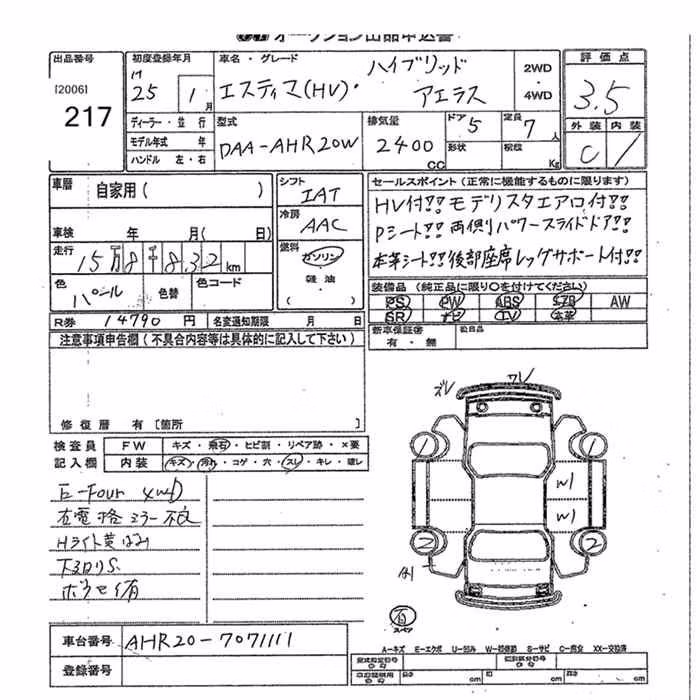 オークション出品申込書
出品番号
[2006]
217
初度登録年月
H
25 1月
ディーラー・並行
モデル年式 年
ハンドル 左・右
車名・グレード
エスティマ(HV)・ハイブリッド
アエラス
2WD
・
4WD
型式
DAA-AHR20W
排気量
2400
CC
ドア
5
形状
定員
7人
積載
Kg
評価点
3.5
外装 内装
C
車歴
自家用( )
車検 年 月( 日)
走行
15万8千832km
色
パール
色替
色コード
シフト
IAT
冷房
AAC
燃料
ガソリン
軽油
( )
セールスポイント(正常に機能するものに限ります)
HV付!! モデリスタエアロ付!!
Pシート!! 両側パワースライドドア!!
本革シート!! 後部座席レッグサポート付!!
装備品(純正品に限り○を付けてください)
PS PW ABS エアB AW
SR ナビ TV 本革
新車保証書
有・無
後日品
R券 14790円 名変通知期限 月 日
注意事項申告欄(不具合内容等は具体的に記入して下さい)
修復歴 有[箇所 ]
検査員
記入欄
FW キズ・飛石・ヒビ割・リペア跡・×要
内装 キズ・汚れ・コゲ・穴・スレ・キレ・破レ
E-Four 4WD
右電格ミラー不良
Hライト黄ばみ
下回りS.
ズレ ワレ
1 1
W1
W1
2 2
A1
有
スペア
A-キズ E-エクボ U-凹み W-補修跡 S-サビ C-腐食 XX-交換済
車台番号
AHR20-7071111
登録番号
型式指定番号
類別区分番号
長さ cm 幅 cm 高さ cm